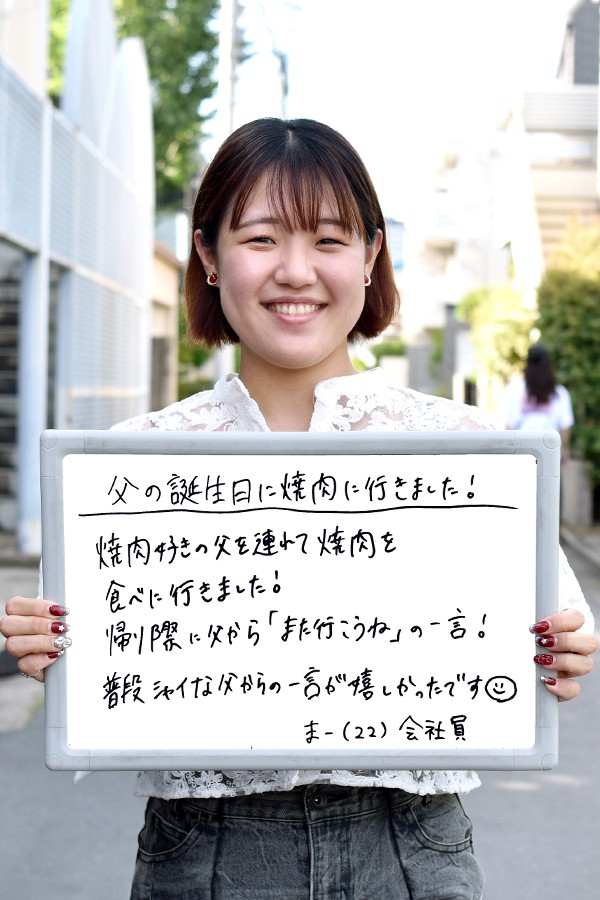 父の誕生日に焼肉に行きました!
焼肉好きの父を連れて焼肉を
食べに行きました!
帰り際に父から「また行こうね」の一言!
普段シャイな父からの一言が嬉しかったです☺
まー(22) 会社員